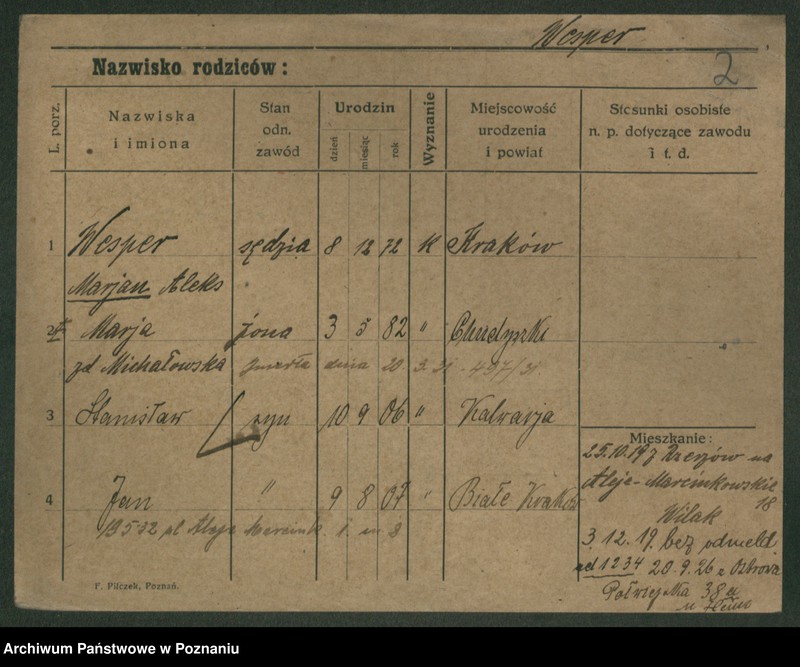 Wesper
2
Nazwisko rodziców:
L. porz.
Nazwiska
i imiona
Stan
odn.
zawód
Urodzin
dzień
miesiąc
rok
Wyznanie
Miejscowość
urodzenia
i powiat
Stosunki osobiste
n. p. dotyczące zawodu
i t. d.
1 Wesper sędzia 8 12 72 K Kraków
Marjan Aleks
2 Marja żona 3 5 82 "
zd Michałowska zmarła dnia 20 3. 31 - 497/31
3 Stanisław syn 10 9 06 " Kalwarja
4 Jan " 9 8 07 " Białe Kraków
19532 Aleje Marcink. 1 m 8
Mieszkanie:
25.10.19 z Rzeszów na
Aleje-Marcinkowskie
18
Wilak
3.12.19. bez odmeld.
ad 1234 20.9.26 z Ostrowa
38a
F. Pilczek, Poznań.
Archiwum Państwowe w Poznaniu